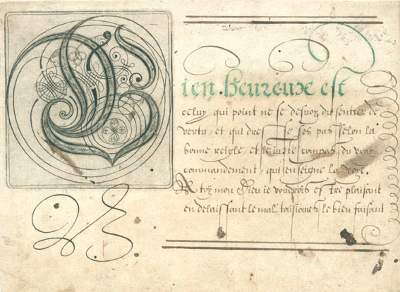 Bien heureux est
celuy qui point ne se desvoy du sentier de
vertu, et qui duit ses pas selon la
bonne reigle et compas du vray
commandement, qui enseigne la voye.
toy mon Dieu ie voudrois estre plaisant
en delaissant le mal tousiours le bien faisant